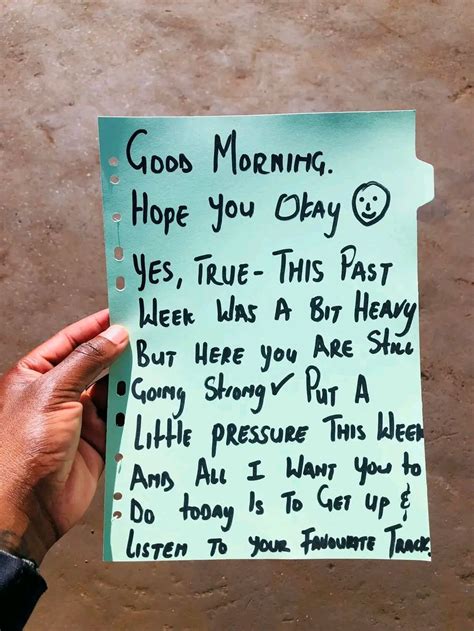 Good Morning.
Hope you Okay
Yes, True - This Past
Week Was A Bit Heavy
But Here you Are Still
Going Strong ✓ Put A
Little pressure This Week
And All I Want you to
Do today Is To Get up &
Listen to your Favourite Track.